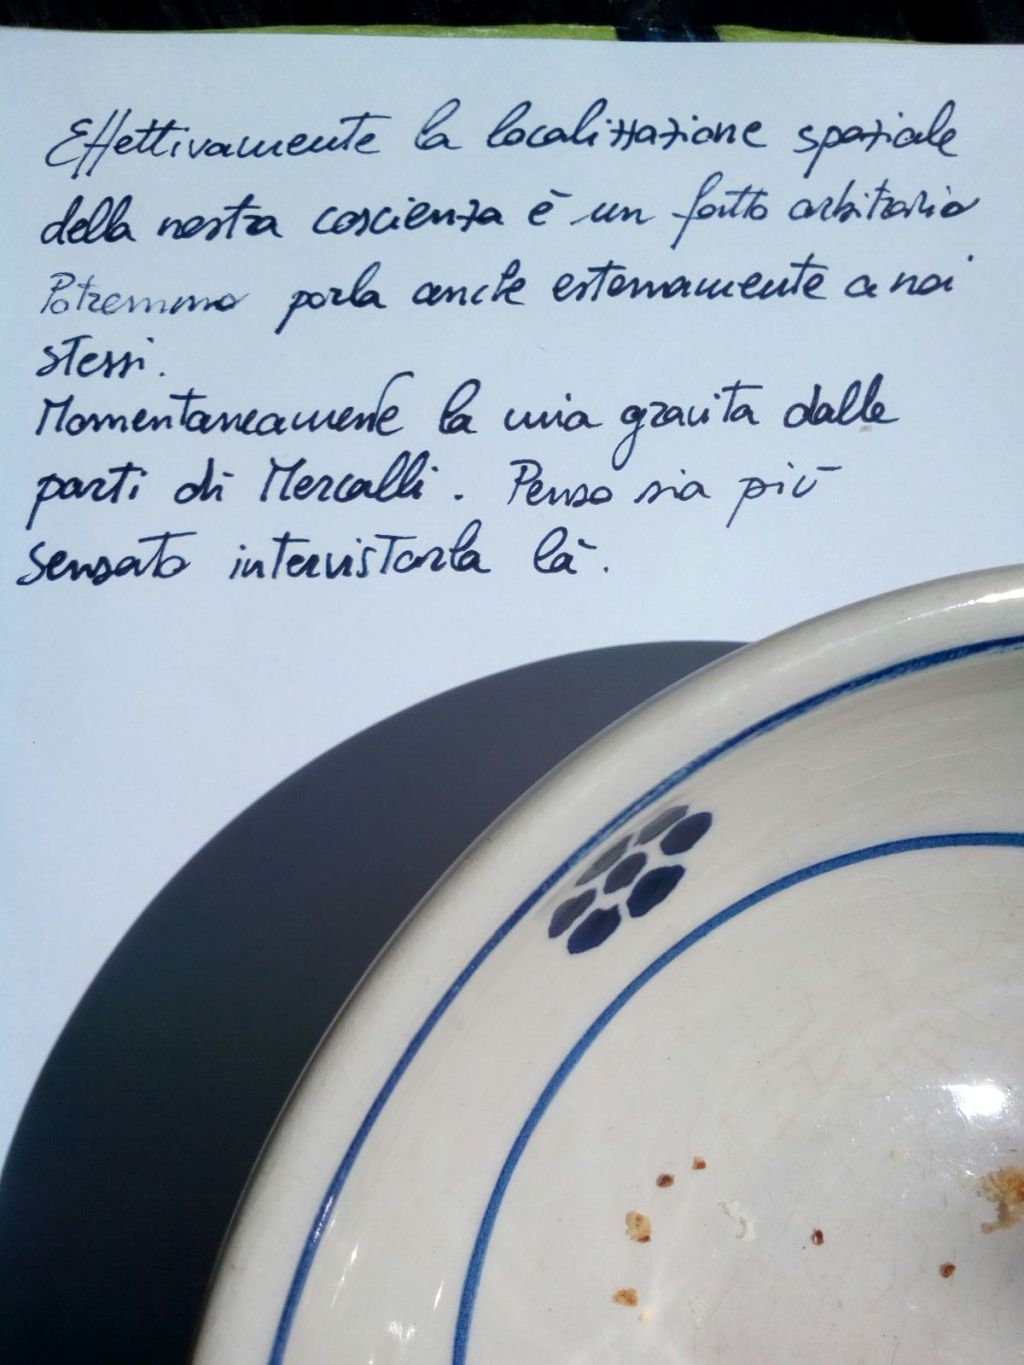 Effettivamente la localizzazione spaziale
della nostra coscienza è un fatto arbitrario
Potremmo porla anche esternamente a noi
stessi.
Momentaneamente la mia gravita dalle
parti di Mercalli. Penso sia più
sensato intervistarla là.